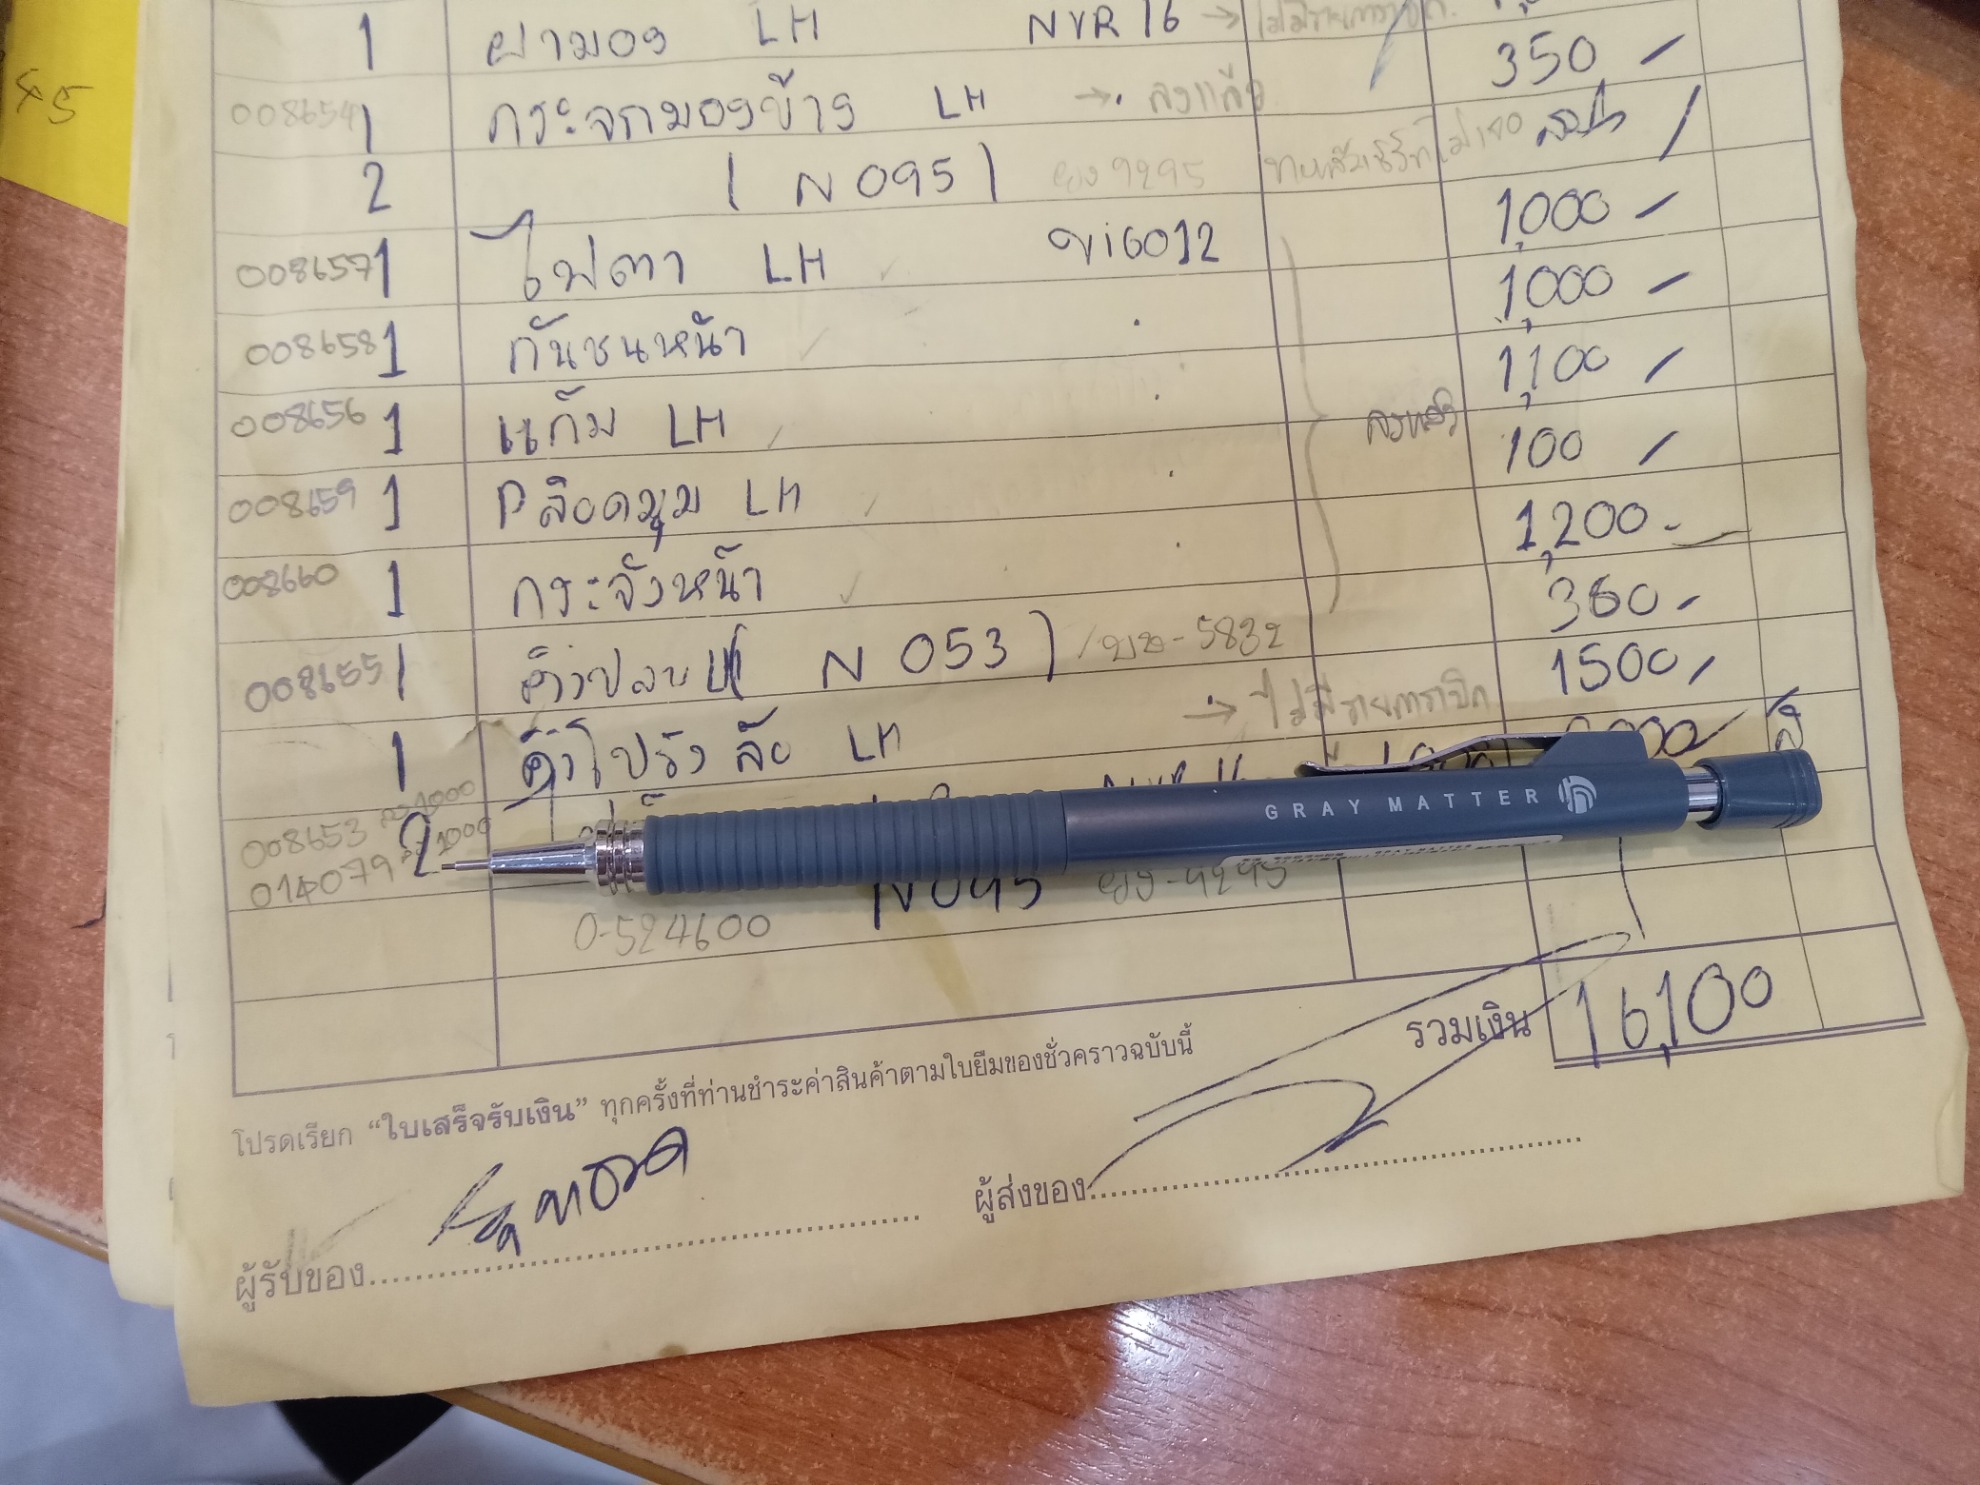 1 ฝามอง LH NVR 16 → ไม่มีรายการเบิก
350 -
×5
008654 1 กระจกมองข้าง LH → ลงแล้ว
2 ( N 095 ) ยง 9295
008657 1 ไฟตา LH vigo12 1,000 -
008658 1 กันชนหน้า 1,000 -
008656 1 แก้ม LH 1,100 -
ลงแล้ว
008659 1 Pล๊อคมุม LH 100 -
008660 1 กระจังหน้า 1,200 -
008655 1 คิ้วปลาย LH ( N 053 ) / บย - 5832 360 -
1 คิ้วโป่งล้อ LH → ไม่มีรายการเบิก 1500 -
008653 1000
014079 1000 2
GRAY MATTER
N 095 ยง - 9295
0-524600
รวมเงิน 16,100
โปรดเรียก “ใบเสร็จรับเงิน” ทุกครั้งที่ท่านชำระค่าสินค้าตามใบยืมของชั่วคราวฉบับนี้
ผู้รับของ
ผู้ส่งของ